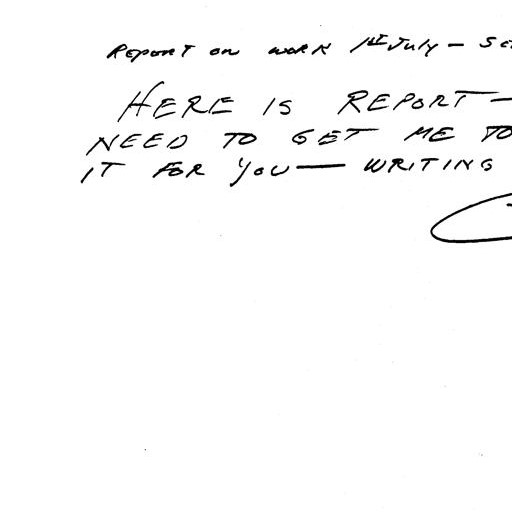 Report on work 1st July — Se
HERE IS REPORT —
NEED TO GET ME TO
IT FOR YOU — WRITING